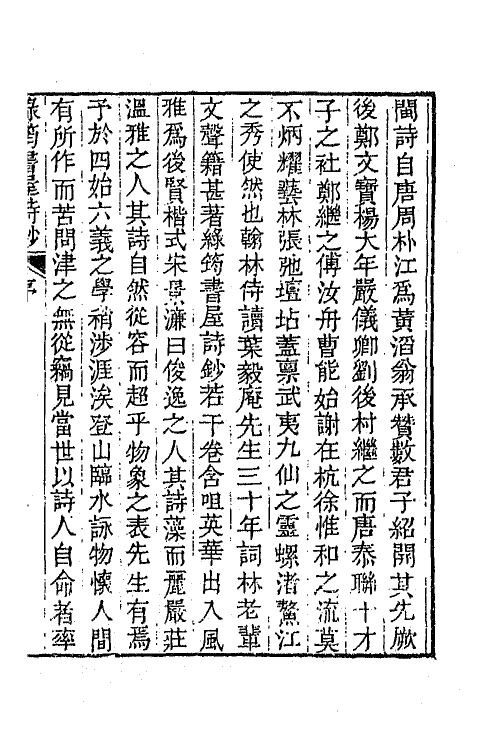 閩詩自唐周朴江爲黃滔翁承贊數君子紹開其先厥
後鄭文寶楊大年嚴儀卿劉後村繼之而唐泰聯十才
子之社鄭繼之傅汝舟曹能始謝在杭徐惟和之流莫
不炳耀藝林張弛壇坫蓋禀武夷九仙之靈螺渚鰲江
之秀使然也翰林侍讀葉毅庵先生三十年詞林老輩
文聲籍甚著綠筠書屋詩鈔若干卷含咀英華出入風
雅爲後賢楷式宋景濂曰俊逸之人其詩藻而麗嚴莊
溫雅之人其詩自然從容而超乎物象之表先生有焉
予於四始六義之學稍涉涯涘登山臨水詠物懷人間
有所作而苦問津之無從竊見當世以詩人自命者率
綠筠書屋詩鈔 序